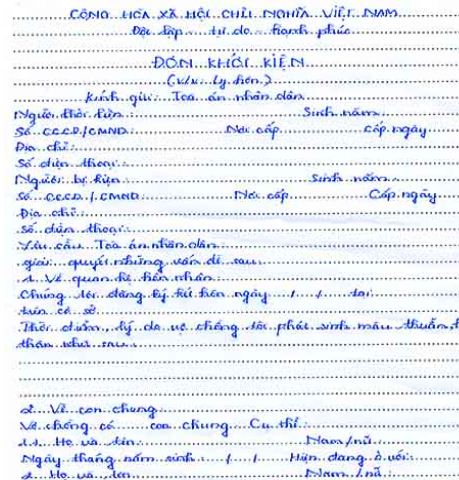 CỘNG HÒA XÃ HỘI CHỦ NGHĨA VIỆT NAM
Độc lập - tự do - hạnh phúc
ĐƠN KHỞI KIỆN
(V/v: Ly hôn)
Kính gửi: Toà án nhân dân
Người khởi kiện: Sinh năm:
Số CCCD/CMND: Nơi cấp Cấp ngày
Địa chỉ:
Số điện thoại:
Người bị kiện: Sinh năm:
Số CCCD/CMND: Nơi cấp Cấp ngày
Địa chỉ:
Số điện thoại:
Yêu cầu Toà án nhân dân
giải quyết những vấn đề sau:
1. Về quan hệ hôn nhân:
Chúng tôi đăng ký kết hôn ngày / / tại
trên cơ sở
Thời điểm, lý do vợ chồng tôi phát sinh mâu thuẫn,
thân như sau:
2. Về con chung
Vợ chồng có con chung Cụ thể:
1.1. Họ và tên: Nam/nữ:
Ngày tháng năm sinh: / / Hiện đang ở với:
2. Họ và tên Nam/nữ: